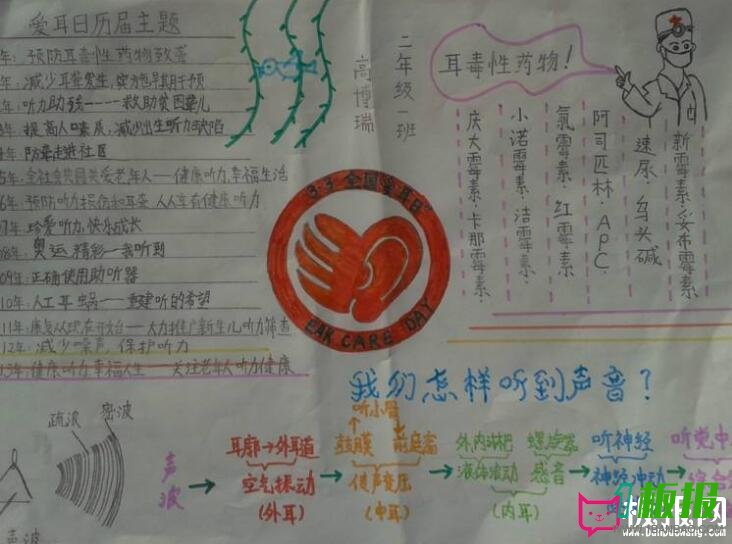 爱耳日历届主题
年：预防耳毒性药物致聋
年：减少耳聋发生，实施早期干预
年：听力助残——救助贫困聋儿
年：提高人口素质，减少出生听力缺陷
年：防聋走进社区
年：全社会共同关爱老年人——健康听力，幸福生活
年：预防听力损伤和耳聋，人人享有健康听力
07年：珍爱听力，快乐成长
08年：奥运精彩——我听到
009年：正确使用助听器
10年：人工耳蜗——重建听的希望
11年：康复从现在开始——大力推广新生儿听力筛查
12年：减少噪声，保护听力
13年：健康听力，幸福人生——关注老年人听力健康
二年级一班
高博瑞
耳毒性药物！
新霉素·妥布霉素·
速尿·乌头碱
阿司匹林·APC·
氯霉素·红霉素·
小诺霉素·洁霉素·
庆大霉素·卡那霉素·
3·3全国爱耳日
EAR CARE DAY
我们怎样听到声音？
疏波 密波
声波
声波
耳廓→外耳道
空气振动
(外耳)
听小骨
鼓膜 前庭窗
传声变压
(中耳)
外内淋巴 螺旋器
液体波动 感音
(内耳)
听神经
神经冲动
听觉中
综合
板报网